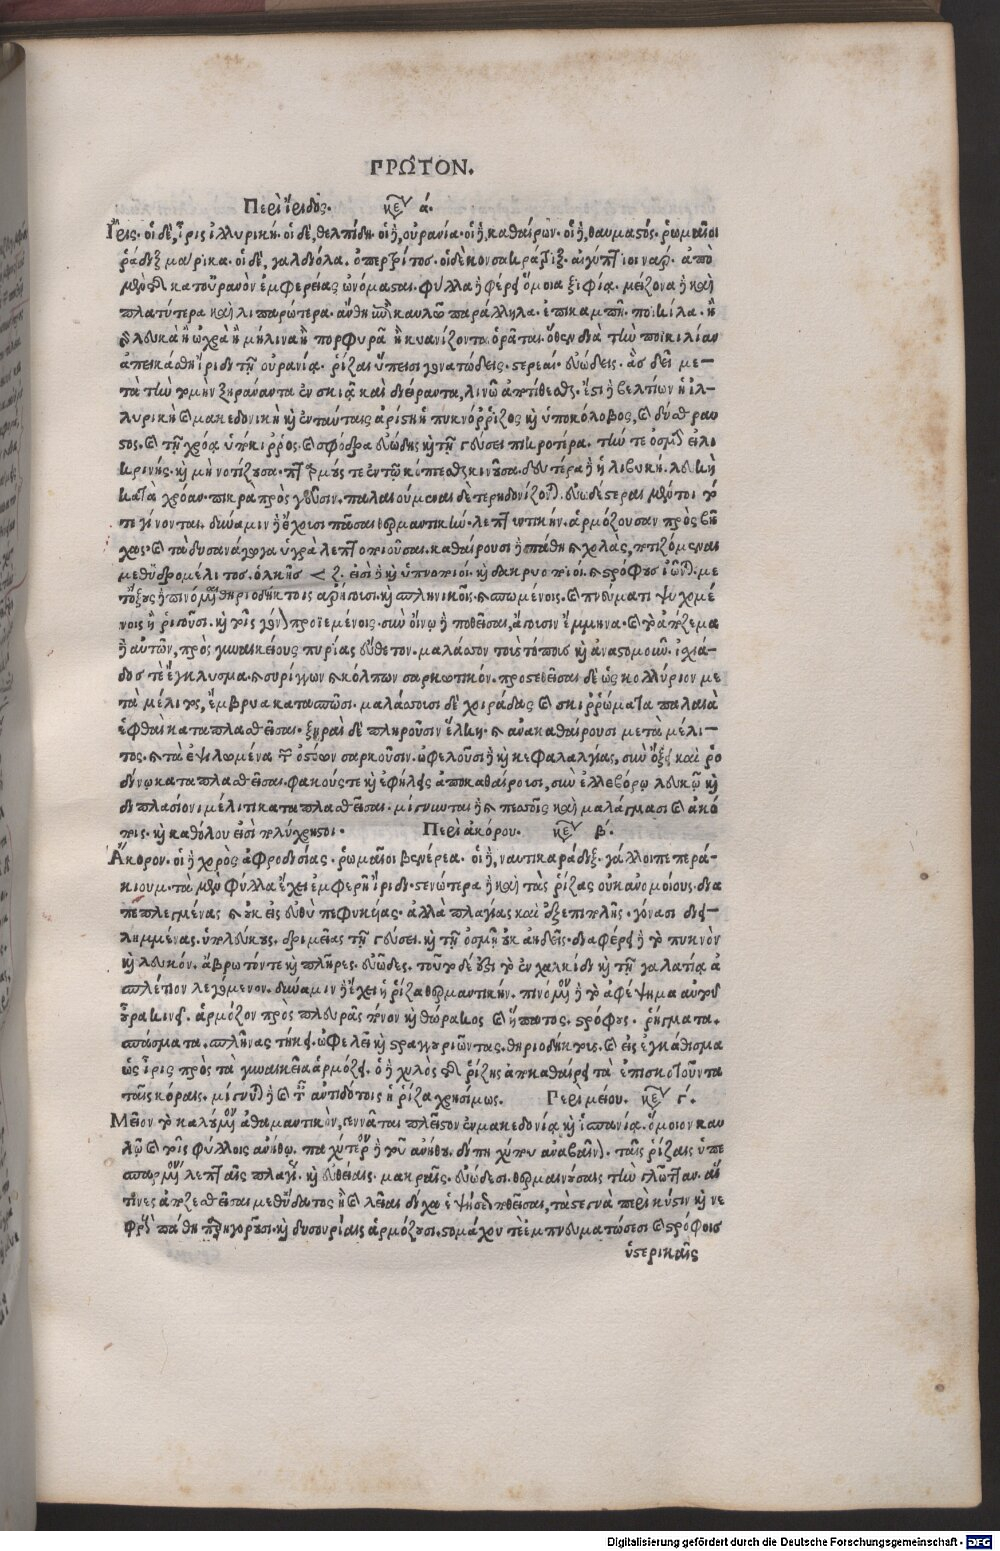 ΠΡΩ͂ΤΟΝ.
Περὶ ἴριδος. κεφ ά.
Ἶρις· οἱ δὲ, ἶρις ἰλλυρική· οἱ δὲ, θελπίδη· οἱ δὲ, οὐρανία· οἱ δὲ, καθαίρων· οἱ δὲ, θαυμαστός· ῥωμαῖοι
ῥάδιξ μαρικα· οἱ δὲ, γλαδιόλα. ὁπερτρίτος. οἱ δὲ κονσακράτριξ. αἰγύπτιοι ναρ. ἀπὸ
μὲν τῆς κατ' οὐρανὸν ἐμφερείας ὠνόμασται. φύλλα δὲ φέρει ὅμοια ξιφίῳ. μείζονα δὲ καὶ
πλατύτερα καὶ λιπαρώτερα. ἄνθη ἐπὶ καυλῷ παράλληλα. ἐπικαμπῆ. ποικίλα. ἢ
γὰρ λευκὰ ἢ ὠχρὰ ἢ μήλινα ἢ πορφυρᾶ ἢ κυανίζοντα ὁρᾶται. ὅθεν διὰ τὴν ποικιλίαν
ἀπεικάσθη ἴριδι τῇ οὐρανίᾳ. ῥίζαι ὕπεισι γονατώδεις. στερεαί. εὐώδεις. ἃς δεῖ με-
τὰ τὴν τομὴν ξηράναντα ἐν σκιᾷ καὶ διείραντα, λινῷ ἀποτίθεσθαι. ἔστι δὲ βελτίων ἡ ἰλ-
λυρικὴ καὶ μακεδονικὴ καὶ ἐν ταύταις ἀρίστη ἡ πυκνόρριζος καὶ ὑποκόλοβος, καὶ δύσθραυ
στος. καὶ τῇ χρόᾳ ὑπόκιρρος. καὶ σφόδρα εὐώδης καὶ τῇ γεύσει πικροτέρα. τήν τε ὀσμὴν εἰλι
κρινής. καὶ μὴ νοτίζουσα. πταρμούς τε ἐν τῷ κόπτεσθαι κινοῦσα. δευτέρα δὲ ἡ λιβυκή. λευκὴ
κατὰ χρόαν. πικρὰ πρὸς γεῦσιν. παλαιούμεναι δὲ τερηδονίζονται. εὐωδέστεραι μέντοι τό
τε γίνονται. δύναμιν δὲ ἔχουσι πᾶσαι θερμαντικὴν. λεπτυντικήν. ἁρμόζουσαν πρὸς βῆ
χας. καὶ τὰ δυσανάγωγα ὑγρὰ λεπτοποιοῦσαι. καθαίρουσι δὲ πάχη καὶ χολὰς, ποτιζόμεναι
μεθ' ὑδρομέλιτος. ὁλκῆς < ζ. εἰσὶ δὲ καὶ ὑπνοποιοί. καὶ δακρυοποιοί. καὶ στρόφους ἰῶνται. με
τ' ὄξους δὲ πινόμεναι θηριοδήκτοις ἀρήγουσι. καὶ σπληνικοῖς. καὶ σπωμένοις. καὶ πνεύματι ψυχομέ
νοις ἢ ῥιγοῦσι. καὶ τοῖς γονὴν προϊεμένοις. σὺν οἴνῳ δὲ ποθεῖσαι, ἄγουσιν ἔμμηνα. καὶ τὸ ἀπόζεμα
δὲ αὐτῶν, πρὸς γυναικείους πυρίας εὔθετον. μαλάσσον τοὺς τόπους καὶ ἀναστομοῦν. ἰσχιά-
δος τὲ ἔγκλυσμα. καὶ συρίγγων καὶ κόλπων σαρκωτικόν. προστεθεῖσαι δὲ ὡς κολλύριον με
τὰ μέλιτος, ἔμβρυα κατασπῶσι. μαλάσσουσι δὲ χοιράδας καὶ σκιρρώματα παλαιὰ
ἑφθαὶ καταπλασθεῖσαι. ξηραὶ δὲ πληροῦσιν ἕλκη. καὶ ἀνακαθαίρουσι μετὰ μέλι-
τος. καὶ τὰ ἐψιλωμένα τῶν ὀστέων σαρκοῦσιν. ὠφελοῦσι δὲ καὶ κεφαλαλγίας, σὺν ὄξει καὶ ῥο
δίνῳ καταπλασθεῖσαι. φακούς τε καὶ ἐφήλεις ἀποκαθαίρουσι, σὺν ἐλλεβόρῳ λευκῷ καὶ
διπλασίονι μέλιτι καταπλασθεῖσαι. μίγνυνται δὲ καὶ πεσσοῖς καὶ μαλάγμασι καὶ ἀκό
ποις. καὶ καθόλου εἰσὶ πολύχρηστοι. Περὶ ἀκόρου. κεφ β´.
Ἄκορον. οἱ δὲ χορὸς ἀφροδισίας. ῥωμαῖοι βενέρεα. οἱ δὲ, ναυτικα ράδιξ. γάλλοι πεπερά-
κιουμ. τὰ μὲν φύλλα ἔχει ἐμφερῆ ἴριδι. στενώτερα δὲ καὶ τὰς ῥίζας οὐκ ἀνομοίους. δια
πεπλεγμένας καὶ οὐκ εἰς εὐθὺ πεφυκυίας. ἀλλὰ πλαγίας καὶ ἐξ ἐπιπολῆς. γόνασι διει-
λημμένας. ὑπολεύκους. δριμείας τῇ γεύσει. καὶ τῇ ὀσμῇ οὐκ ἀηδεῖς. διαφέρει δὲ τὸ πυκνὸν
καὶ λευκόν. ἄβρωτόν τε καὶ πλῆρες. εὐῶδες. τοιοῦτο δέ ἐστι τὸ ἐν χαλκίδι καὶ τῇ γαλατίᾳ ἀ
σπλέτιον λεγόμενον. δύναμιν δὲ ἔχει ἡ ῥίζα θερμαντικήν. πινόμενον δὲ τὸ ἀφέψημα αὐτοῦ
οὖρα κινεῖ. ἁρμόζον πρὸς πλευρᾶς πόνον καὶ θώρακος καὶ ἥπατος. στρόφους. ῥήγματα.
σπάσματα. σπλῆνας τήκει. ὠφελεῖ καὶ στραγγουριῶντας. θηριοδήκτοις. καὶ εἰς ἐγκάθισμα
ὡς ἶρις πρὸς τὰ γυναικεῖα ἁρμόζει. ὁ δὲ χυλὸς τῆς ῥίζης ἀποκαθαίρει τὰ ἐπισκοτοῦντα
ταῖς κόραις. μίγνυται δὲ καὶ ταῖς ἀντιδότοις ἡ ῥίζα χρησίμως. Περὶ μείου. κεφ γ´.
Μεῖον τὸ καλούμενον ἀθαμαντικὸν, γεννᾶται πλεῖστον ἐν μακεδονίᾳ καὶ ἱσπανίᾳ. ὅμοιον καυ
λῷ καὶ τοῖς φύλλοις ἀνήθῳ. παχύτερον δὲ τοῦ ἀνήθου. δίπηχύ που ἀναβαῖνον. ταῖς ῥίζαις ὑπε
σπαρμένον λεπταῖς πλαγίαις. καὶ εὐθείαις. μακραῖς. εὐώδεσι. θερμαινούσαις τὴν γλῶτταν. αἵ
τινες ἀποζεσθεῖσαι μεθ' ὕδατος ἢ καὶ λεῖαι δίχα ἑψήσεως ποθεῖσαι, τὰ στεγνὰ περὶ κύστιν καὶ νε
φροὺς πάθη παρηγοροῦσι. καὶ δυσουρίαις ἁρμόζουσι. στομάχου τὲ ἐμπνευματώσεσι καὶ στρόφοις
ὑστερικαῖς
Digitalisierung gefördert durch die Deutsche Forschungsgemeinschaft - DFG